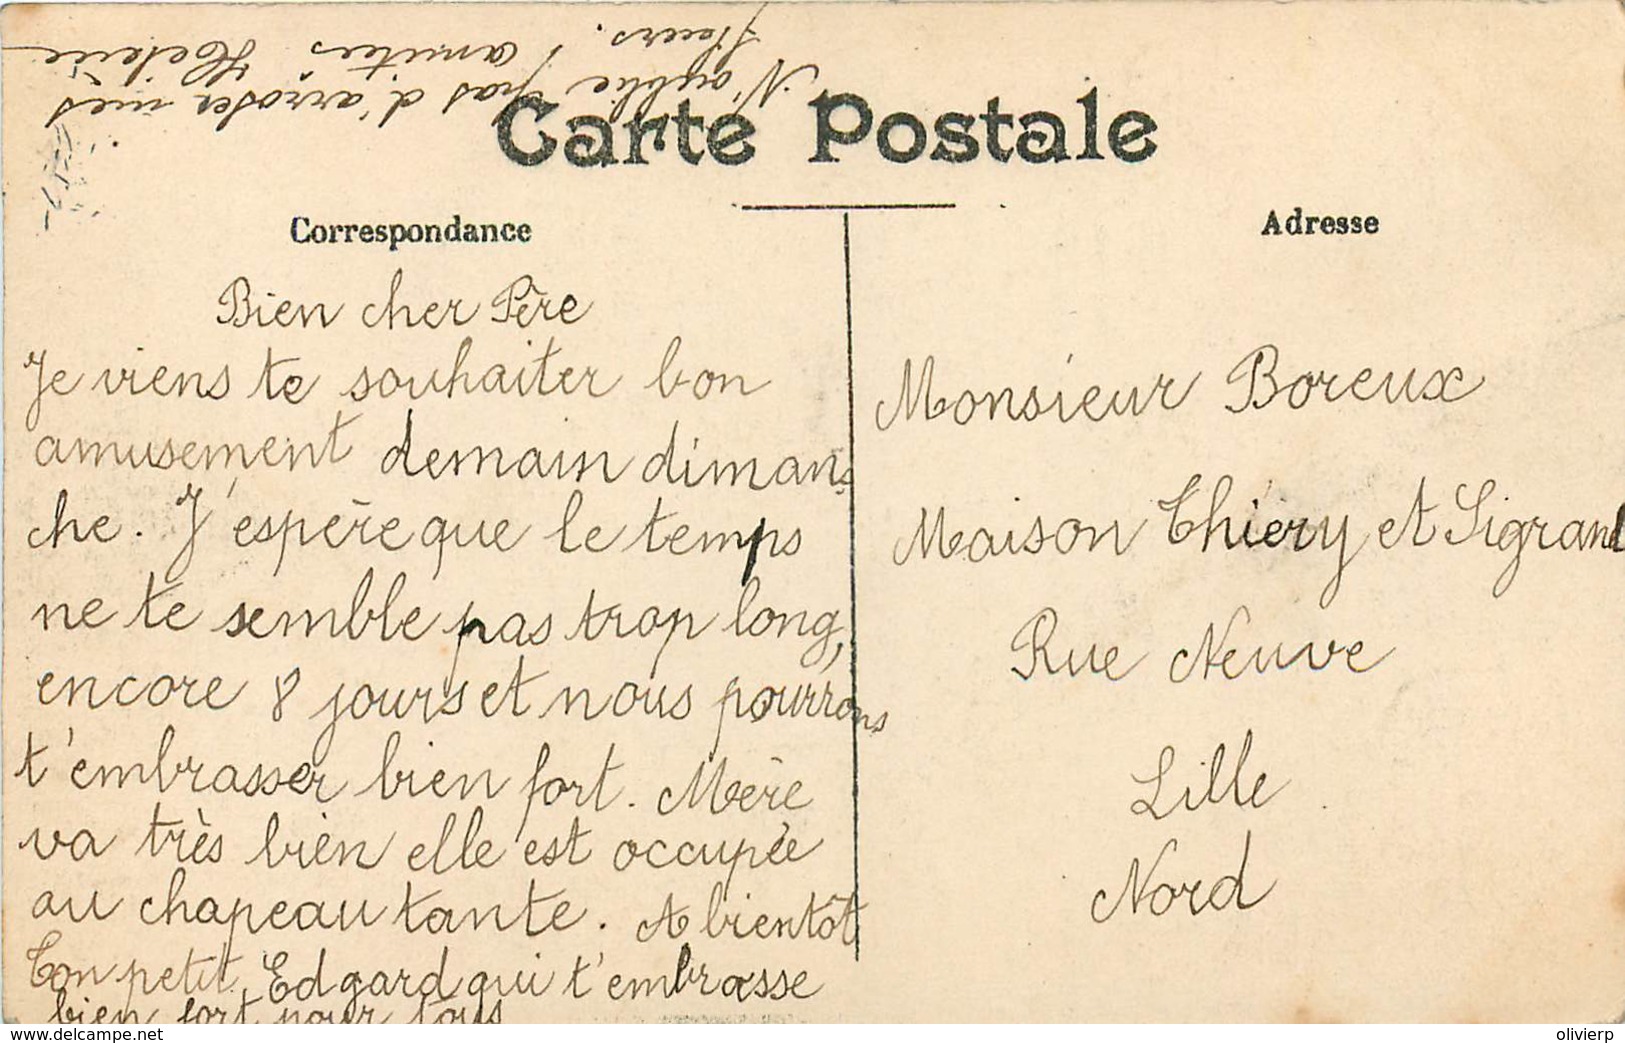 N'oublie pas d'arroser mes
fleurs. amitiés
Carte Postale
Correspondance
Adresse
Bien cher Père
Je viens te souhaiter bon
amusement demain diman-
che. J'espère que le temps
ne te semble pas trop long,
encore 8 jours et nous pourrons
t'embrasser bien fort. Mère
va très bien elle est occupée
au chapeau tante. A bientôt
Ton petit Edgard qui t'embrasse
bien fort pour tous
Monsieur Boreux
Maison Thiéry et Sigrand
Rue Neuve
Lille
Nord
www.delcampe.net
olivierp